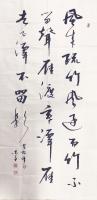 風来疏竹風過而竹不
留聲雁渡寒潭雁
去而潭不留影